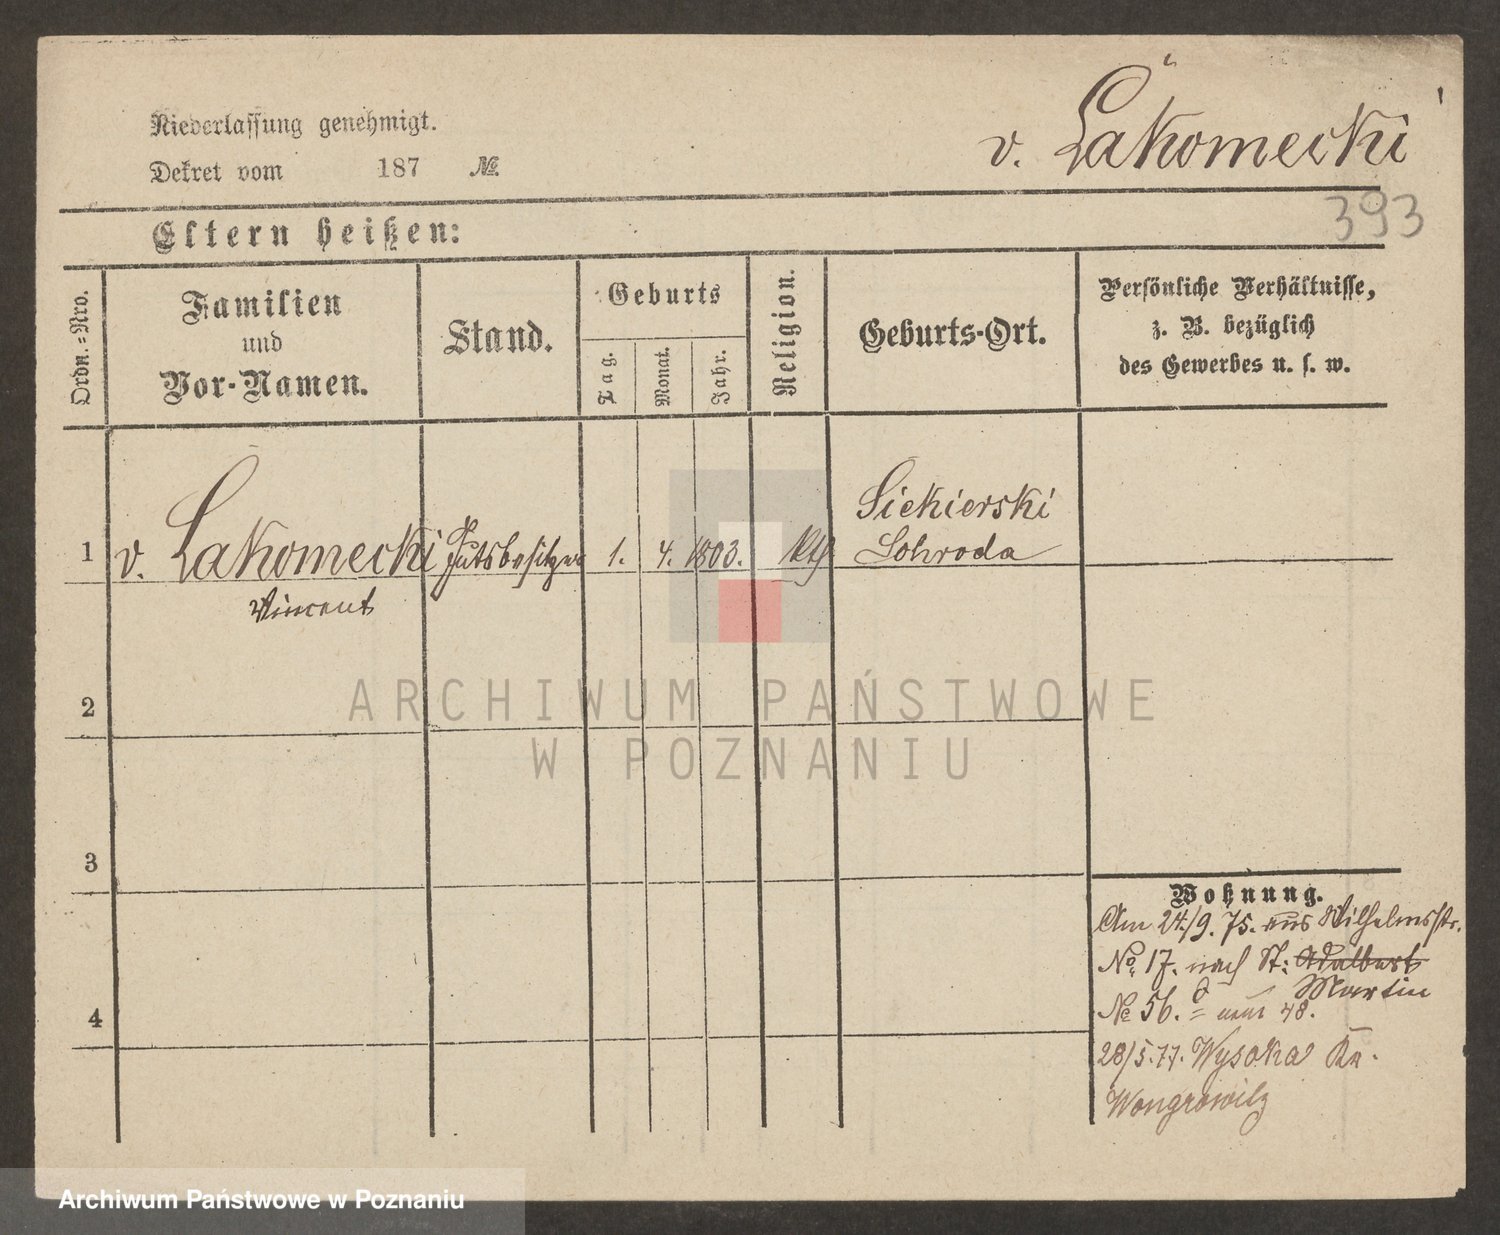 v. Łakomecki
Niederlassung genehmigt.
Dekret vom 187 №
393
Eltern heißen:
Ordn.=Nro.
Familien
und
Vor-Namen.
Stand.
Geburts
Tag.
Monat.
Jahr.
Religion.
Geburts-Ort.
Persönliche Verhältnisse,
z. B. bezüglich
des Gewerbes u. s. w.
1
v. Łakomecki
Vincent
Gutsbesitzer
1.
4.
1803.
kth
Siekierki
Schroda
2
ARCHIWUM PAŃSTWOWE
W POZNANIU
3
4
Wohnung.
Am 24/9. 75. aus Wilhelmsstr.
No. 17. nach St: Adalbert
Martin
No 56. 48.
28/5.77. Wysoka Kr.
Wongrowitz
Archiwum Państwowe w Poznaniu